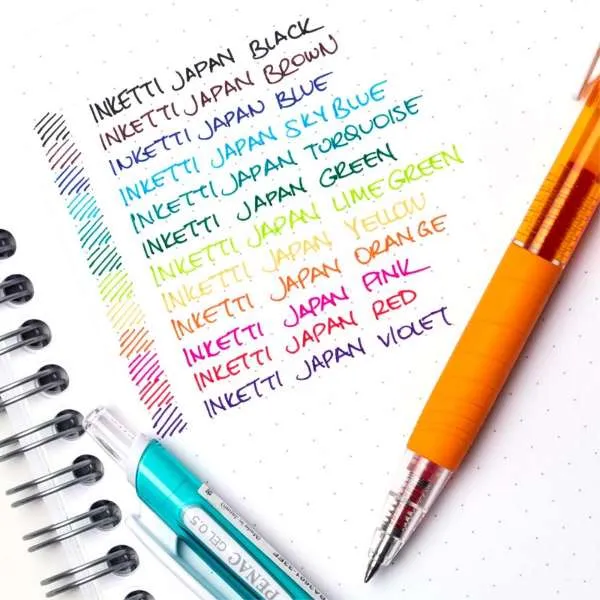 INKETTI JAPAN BLACK
INKETTI JAPAN BROWN
INKETTI JAPAN BLUE
INKETTI JAPAN SKY BLUE
INKETTI JAPAN TURQUOISE
INKETTI JAPAN GREEN
INKETTI JAPAN LIME GREEN
INKETTI JAPAN YELLOW
INKETTI JAPAN ORANGE
INKETTI JAPAN PINK
INKETTI JAPAN RED
INKETTI JAPAN VIOLET
PENAC GEL 0.5